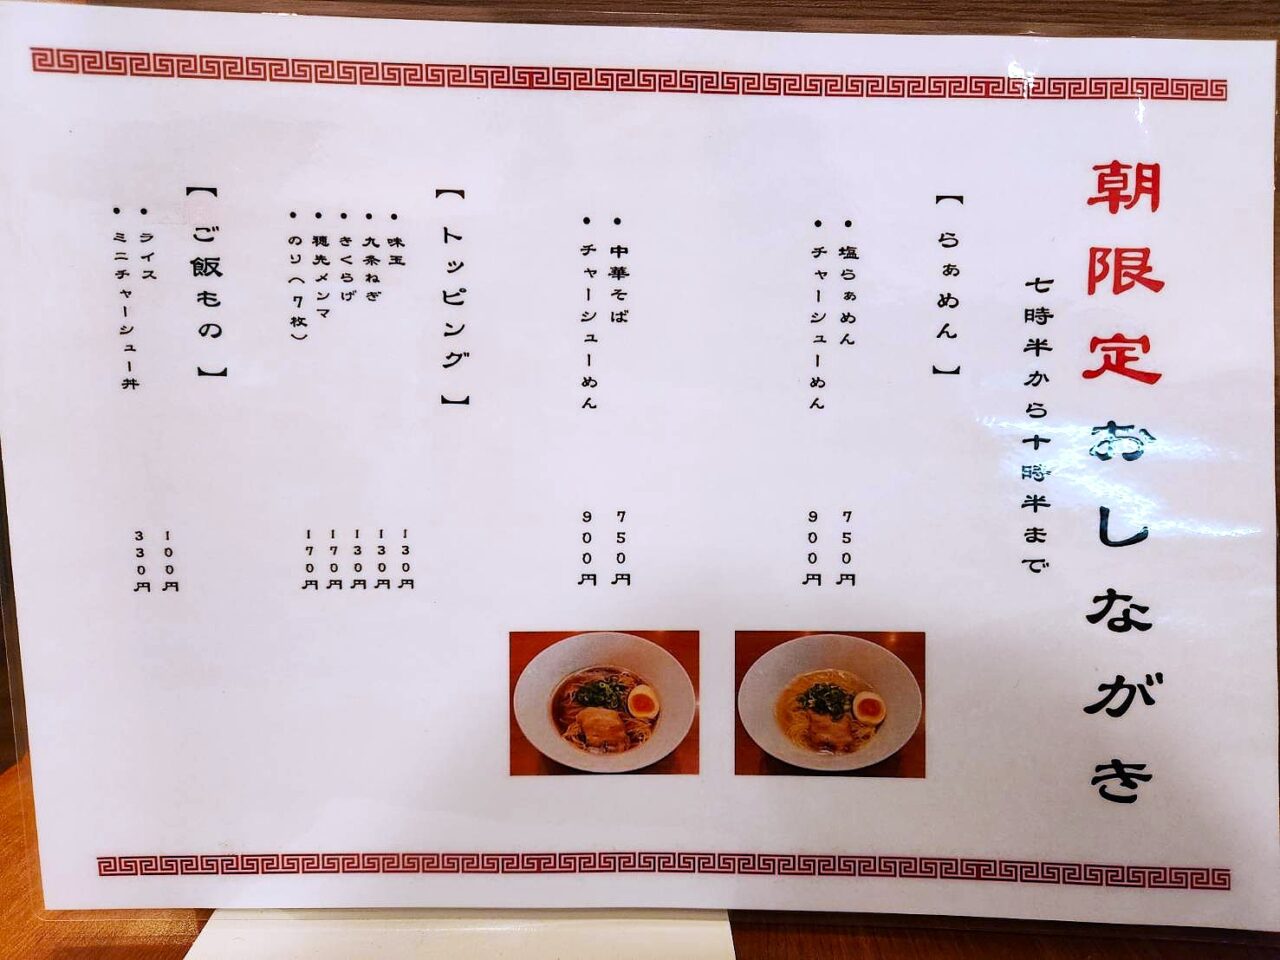 朝限定おしながき
七時半から十時半まで
【らぁめん】
・塩らぁめん 750円
・チャーシューめん 900円
・中華そば 750円
・チャーシューめん 900円
【トッピング】
・味玉 130円
・九条ねぎ 130円
・きくらげ 130円
・穂先メンマ 170円
・のり(7枚) 170円
【ご飯もの】
・ライス 100円
・ミニチャーシュー丼 330円